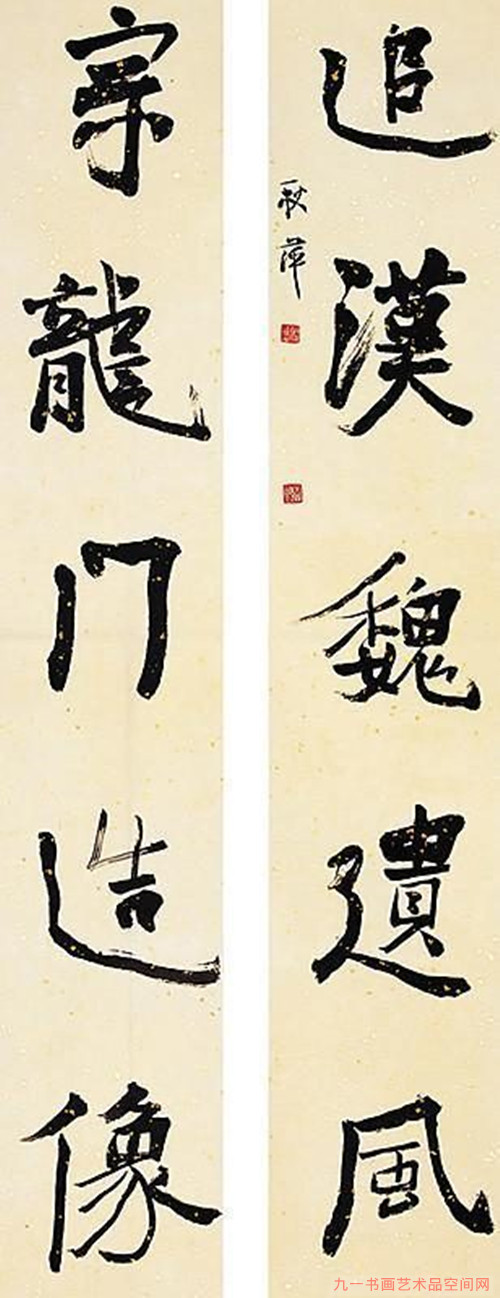 追漢魏遺風
秋萍
宗龍门造像
九一书画艺术品空间网